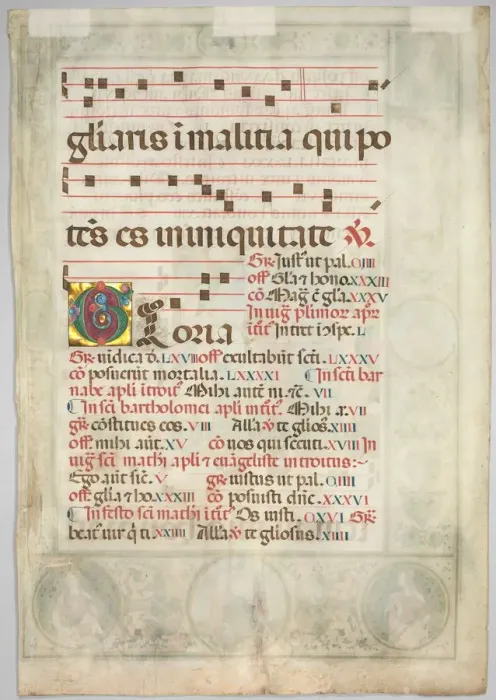 gliaris i malitia qui po
tēs es in iniquitate ℟.
Gr̄ Just᷒ ut pal. CIIII
off Gl̄a ⁊ hono XXXIII
cō Maḡ ē gl̄a. XXXV
In uiḡ pl̄imor apr̄
Gloria
Gr̄ uidica d̄. LXVIII off exultabūt scti. LXXXV
cō posuerūt mortalia. LXXXXI In scti bar
nabe apli itroit᷒ Mihi autē ni. VII
In scti bartholomei apli in tit᷒. Mihi a. VII
gr̄ cōstitues eos. VIII All'a ℣ te glios. XIIII
off mihi aūt. XV cō uos qui secuti. XVIII In
uiḡ sci mathi apli ⁊ euāgeliste introitus:~
Ego aut̄ sic̄. V gr̄ iustus ut pal. CIIII
off gl̄ia ⁊ ho. XXXIII cō posuisti dn̄e. XXXVI
In festo sci mathi i tit᷒ Os iusti. CXVI Gr̄
beat᷒ uir q̄ ti. XXIIII All'a ℣ te gliosus. XIIII